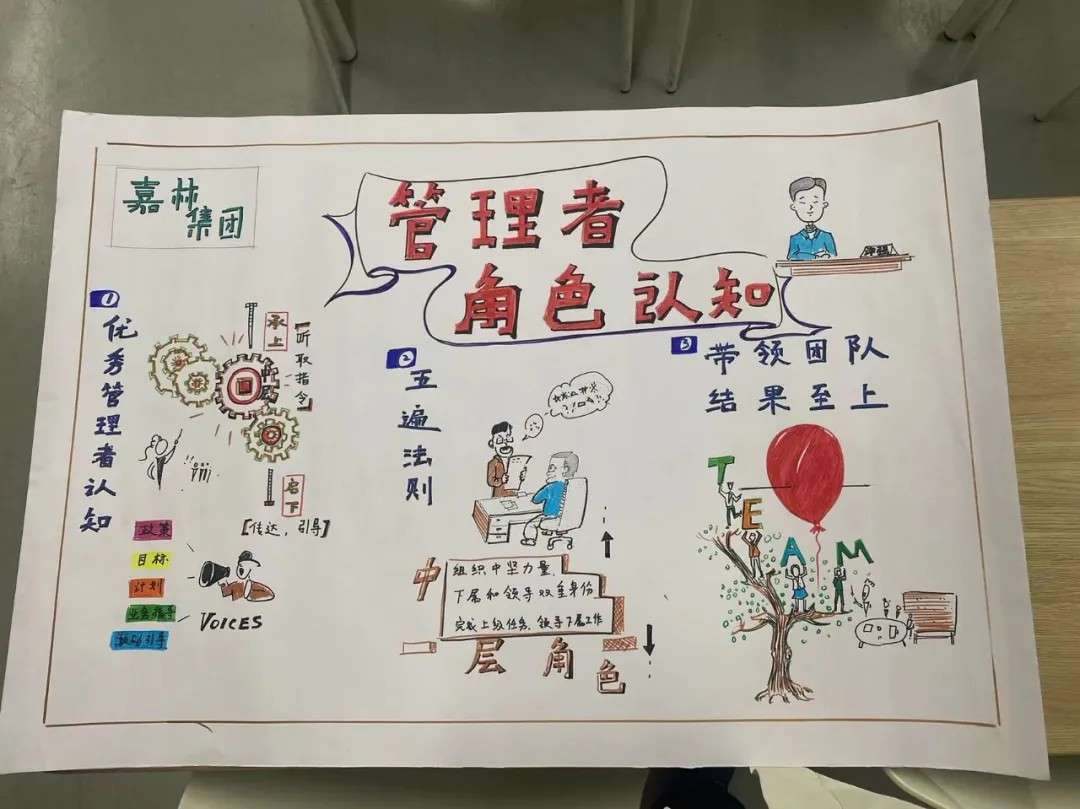 嘉林
集团
管理者
角色认知
1
优秀管理者认知
承上
[听取指令]
启下
[传达，引导]
政策
目标
计划
业务指导
激励引导
VOICES
2
五遍法则
中
组织中坚力量、
下属和领导双重身份
完成上级任务、领导下属工作
层角色
3
带领团队
结果至上
TEAM